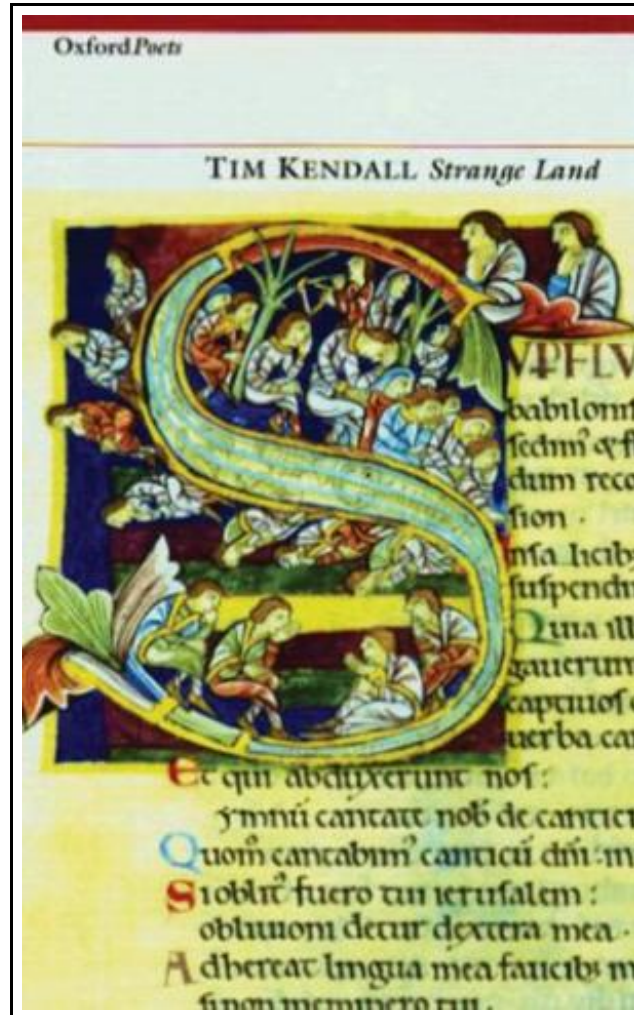 Oxford Poets
TIM KENDALL Strange Land
SVP FLV
babiloni
sedim⁹ & f
dum reco
sion .
nsa licib;
suspendi
Quia ill
gauerunt
captiuos
uerba can
Et qui abduxerunt nos :
ymnū cantate nob̄ de cantici
Quom̄ cantabim⁹ canticū dn̄i : in
Si oblit⁹ fuero tui ierusalem :
obliuioni detur dextera mea .
Adhereat lingua mea faucib; m
si non meminero tui .